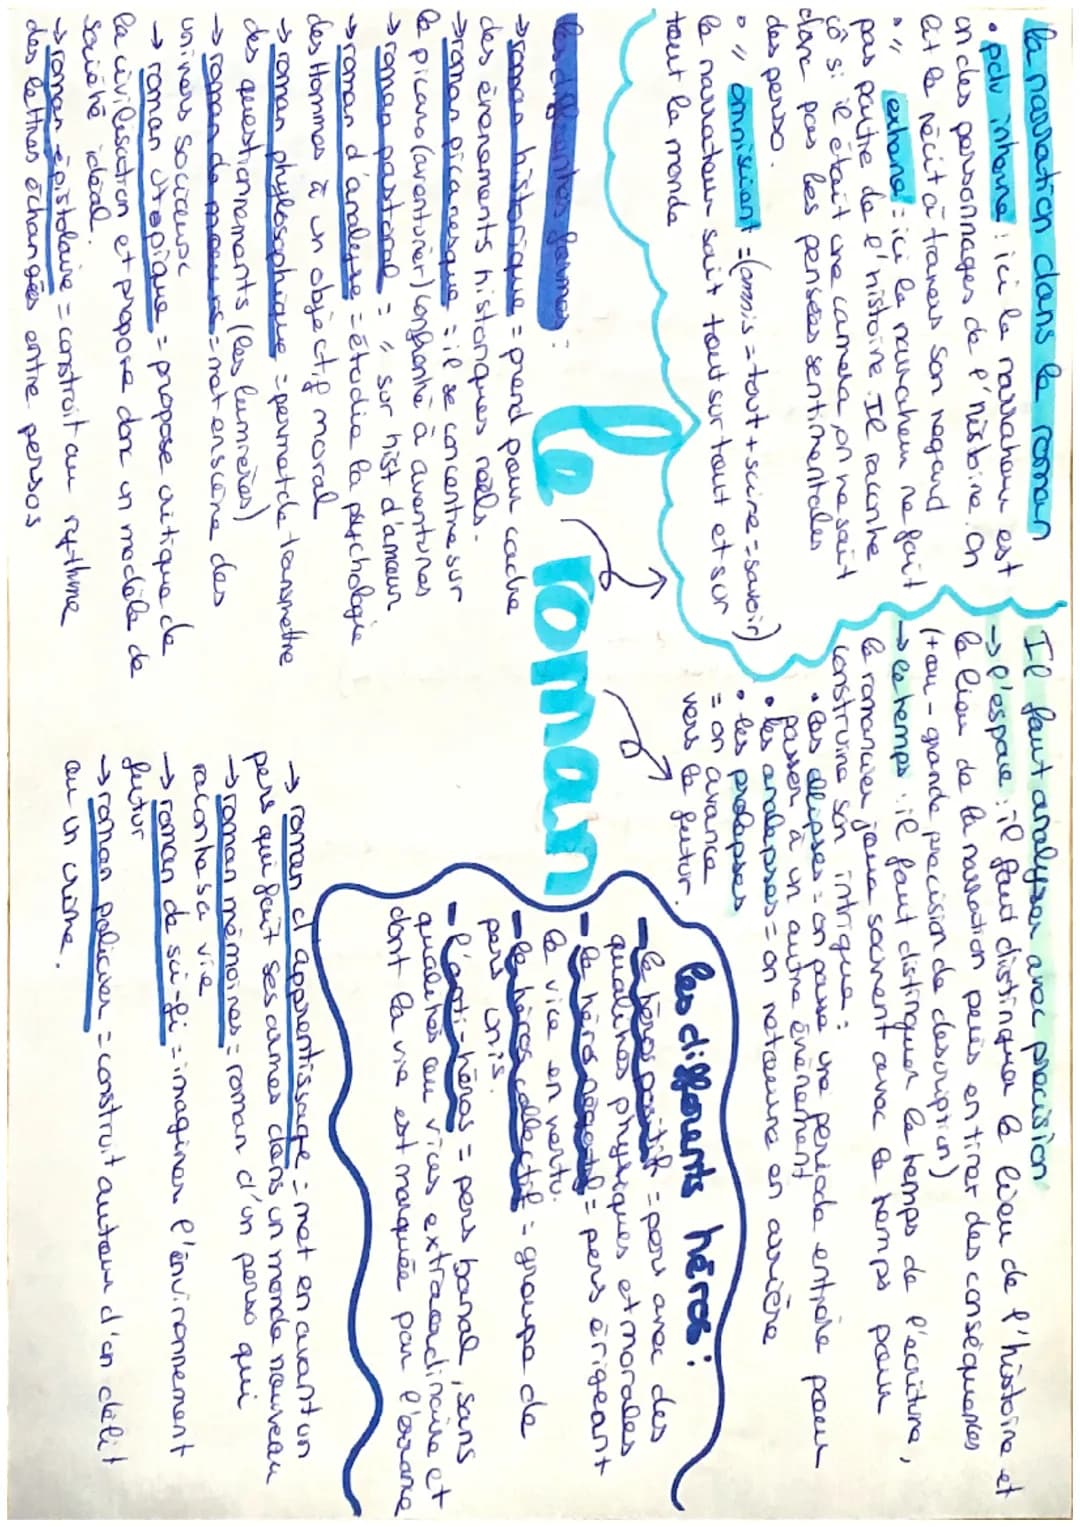 la narration dans le roman
• pdv interne : ici le narrateur est
un des personnages de l'histoire. On
lit le récit à travers son regard
• " externe : ici le narrateur ne fait
pas partie de l'histoire. Il raconte
cô si il était une camera, on ne sait
donc pas les pensées sentimentales
des perso.
• " omniscient = (omnis = tout + scire = savoir)
le narrateur sait tout sur tout et sur
tout le monde
Il faut analyser avec précision
→ l'espace : il faut distinguer le lieu de l'histoire et
le lieu de la narration puis en tirer des conséquences
(+ ou - grande précision de description)
→ le temps : il faut distinguer le temps de l'écriture,
le romancier joue souvent avec le temps pour
construire son intrigue :
• les ellipses = on passe une période entière pour
passer à un autre événement
• les analepses = on retourne en arrière
• les prolepses
= on avance
vers le futur.
le roman
les différentes formes :
→ roman historique = prend pour cadre
des événements historiques réels.
→ roman picaresque = il se concentre sur
le picaro (aventurier) confronté à aventures
→ roman pastoral = " sur hist d'amour
→ roman d'analyse = étudie la psychologie
des Hommes à un objectif moral
→ roman phylosophique = permet de transmettre
des questionnements (les lumières)
→ roman de moeurs = met en scène des
univers sociaux
→ roman utopique = propose critique de
la civilisation et propose donc un modèle de
société idéal.
→ roman épistolaire = construit au rythme
des lettres échangées entre persos
les différents héros :
- le héros positif = pers avec des
qualités physiques et morales
- le héros négatif = pers érigeant
le vice en vertu.
- le héros collectif = groupe de
pers unis.
- l'anti-héros = pers banal, sans
qualités ou vices extraordinaire et
dont la vie est marquée par l'errance
→ roman d'apprentissage = met en avant un
pers qui fait ses armes dans un monde nouveau
→ roman mémoires = roman d'un perso qui
raconte sa vie
→ roman de sci-fi = imaginer l'environnement
futur
→ roman policier = construit autour d'un délit
ou un crime.